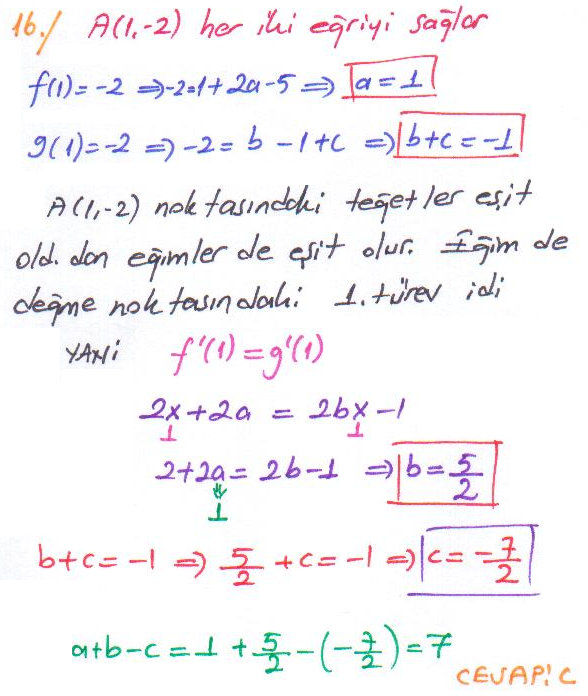 16./ A(1,-2) her iki eğriyi sağlar
f(1)=-2 ⇒ -2=1+2a-5 ⇒ a=1
g(1)=-2 ⇒ -2= b -1+c ⇒ b+c=-1
A(1,-2) noktasındaki teğetler eşit
old. dan eğimler de eşit olur. Eğim de
değme noktasındaki 1. türev idi
YANİ f'(1)=g'(1)
2x+2a = 2bx-1
1 1
2+2a= 2b-1 ⇒ b=5/2
1
b+c=-1 ⇒ 5/2 +c=-1 ⇒ c=-7/2
a+b-c=1+5/2-(-7/2)=7
CEVAP: C